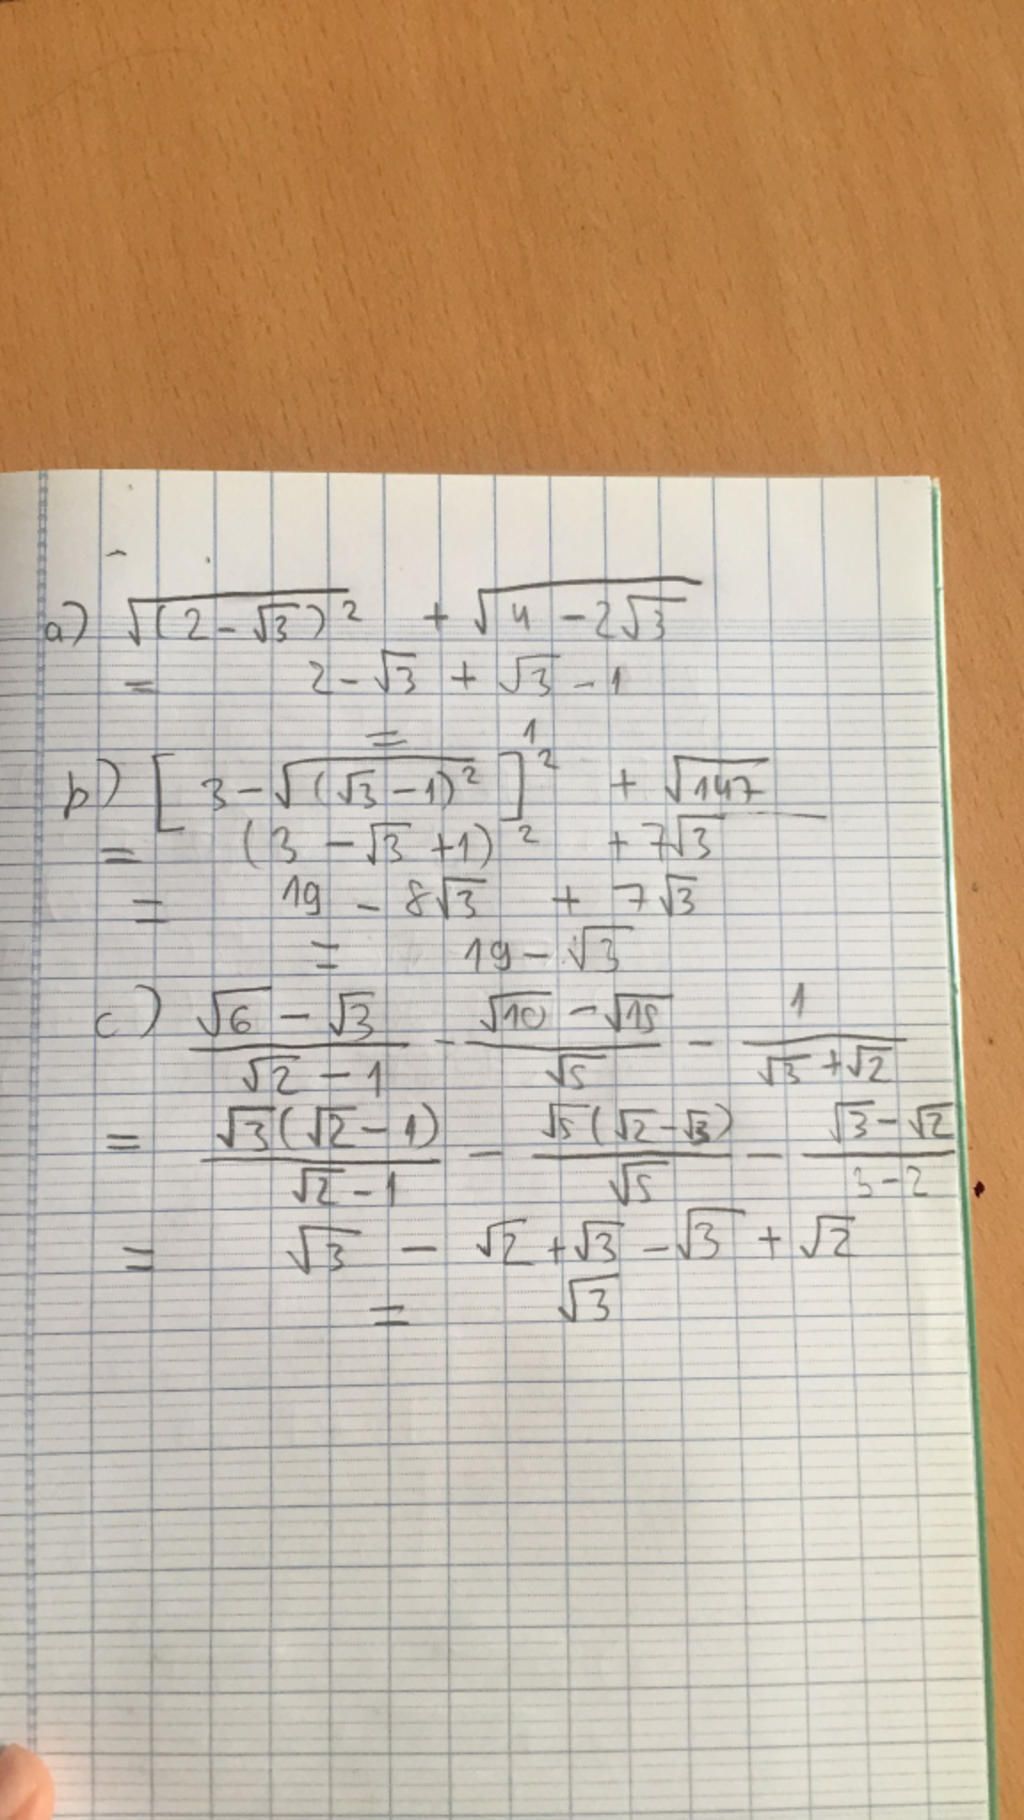 a) √(2-√3)² + √(4-2√3)
= 2-√3 + √3 - 1
= 1
b) [3-√(√3-1)²]² + √147
= (3-√3+1)² + 7√3
= 19 - 8√3 + 7√3
= 19-√3
c) (√6-√3)/(√2-1) - (√10-√15)/√5 - 1/(√3+√2)
= √3(√2-1)/(√2-1) - √5(√2-√3)/√5 - (√3-√2)/(3-2)
= √3 - √2+√3 -√3 + √2
= √3